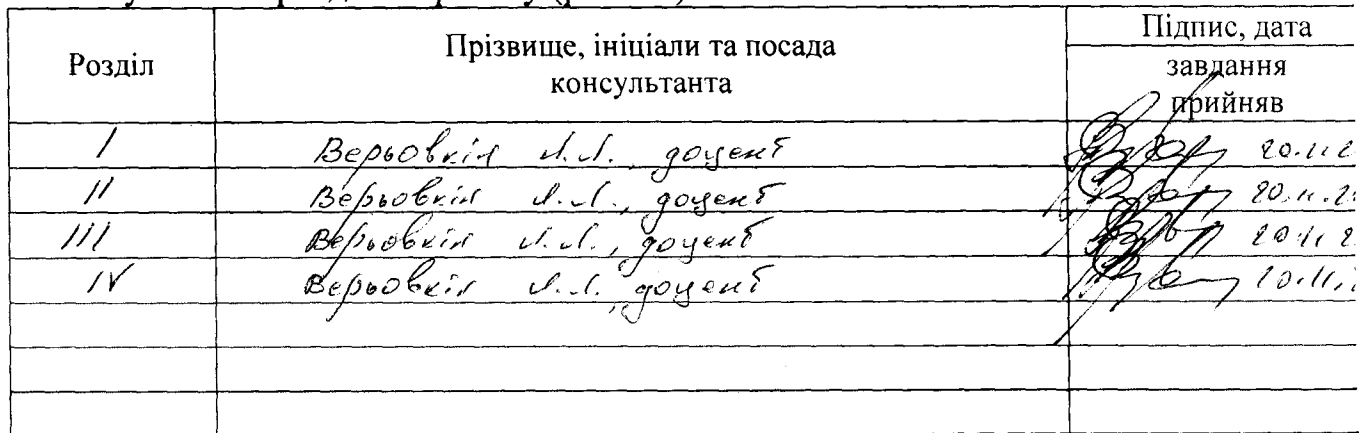 Розділ
Прізвище, ініціали та посада
консультанта
Підпис, дата
завдання
прийняв
I Верьовкін Л.Л., доцент 20.11.2
II Верьовкін Л.Л., доцент 20.11.2
III Верьовкін Л.Л., доцент 20.11.2
IV Верьовкін Л.Л., доцент 20.11.